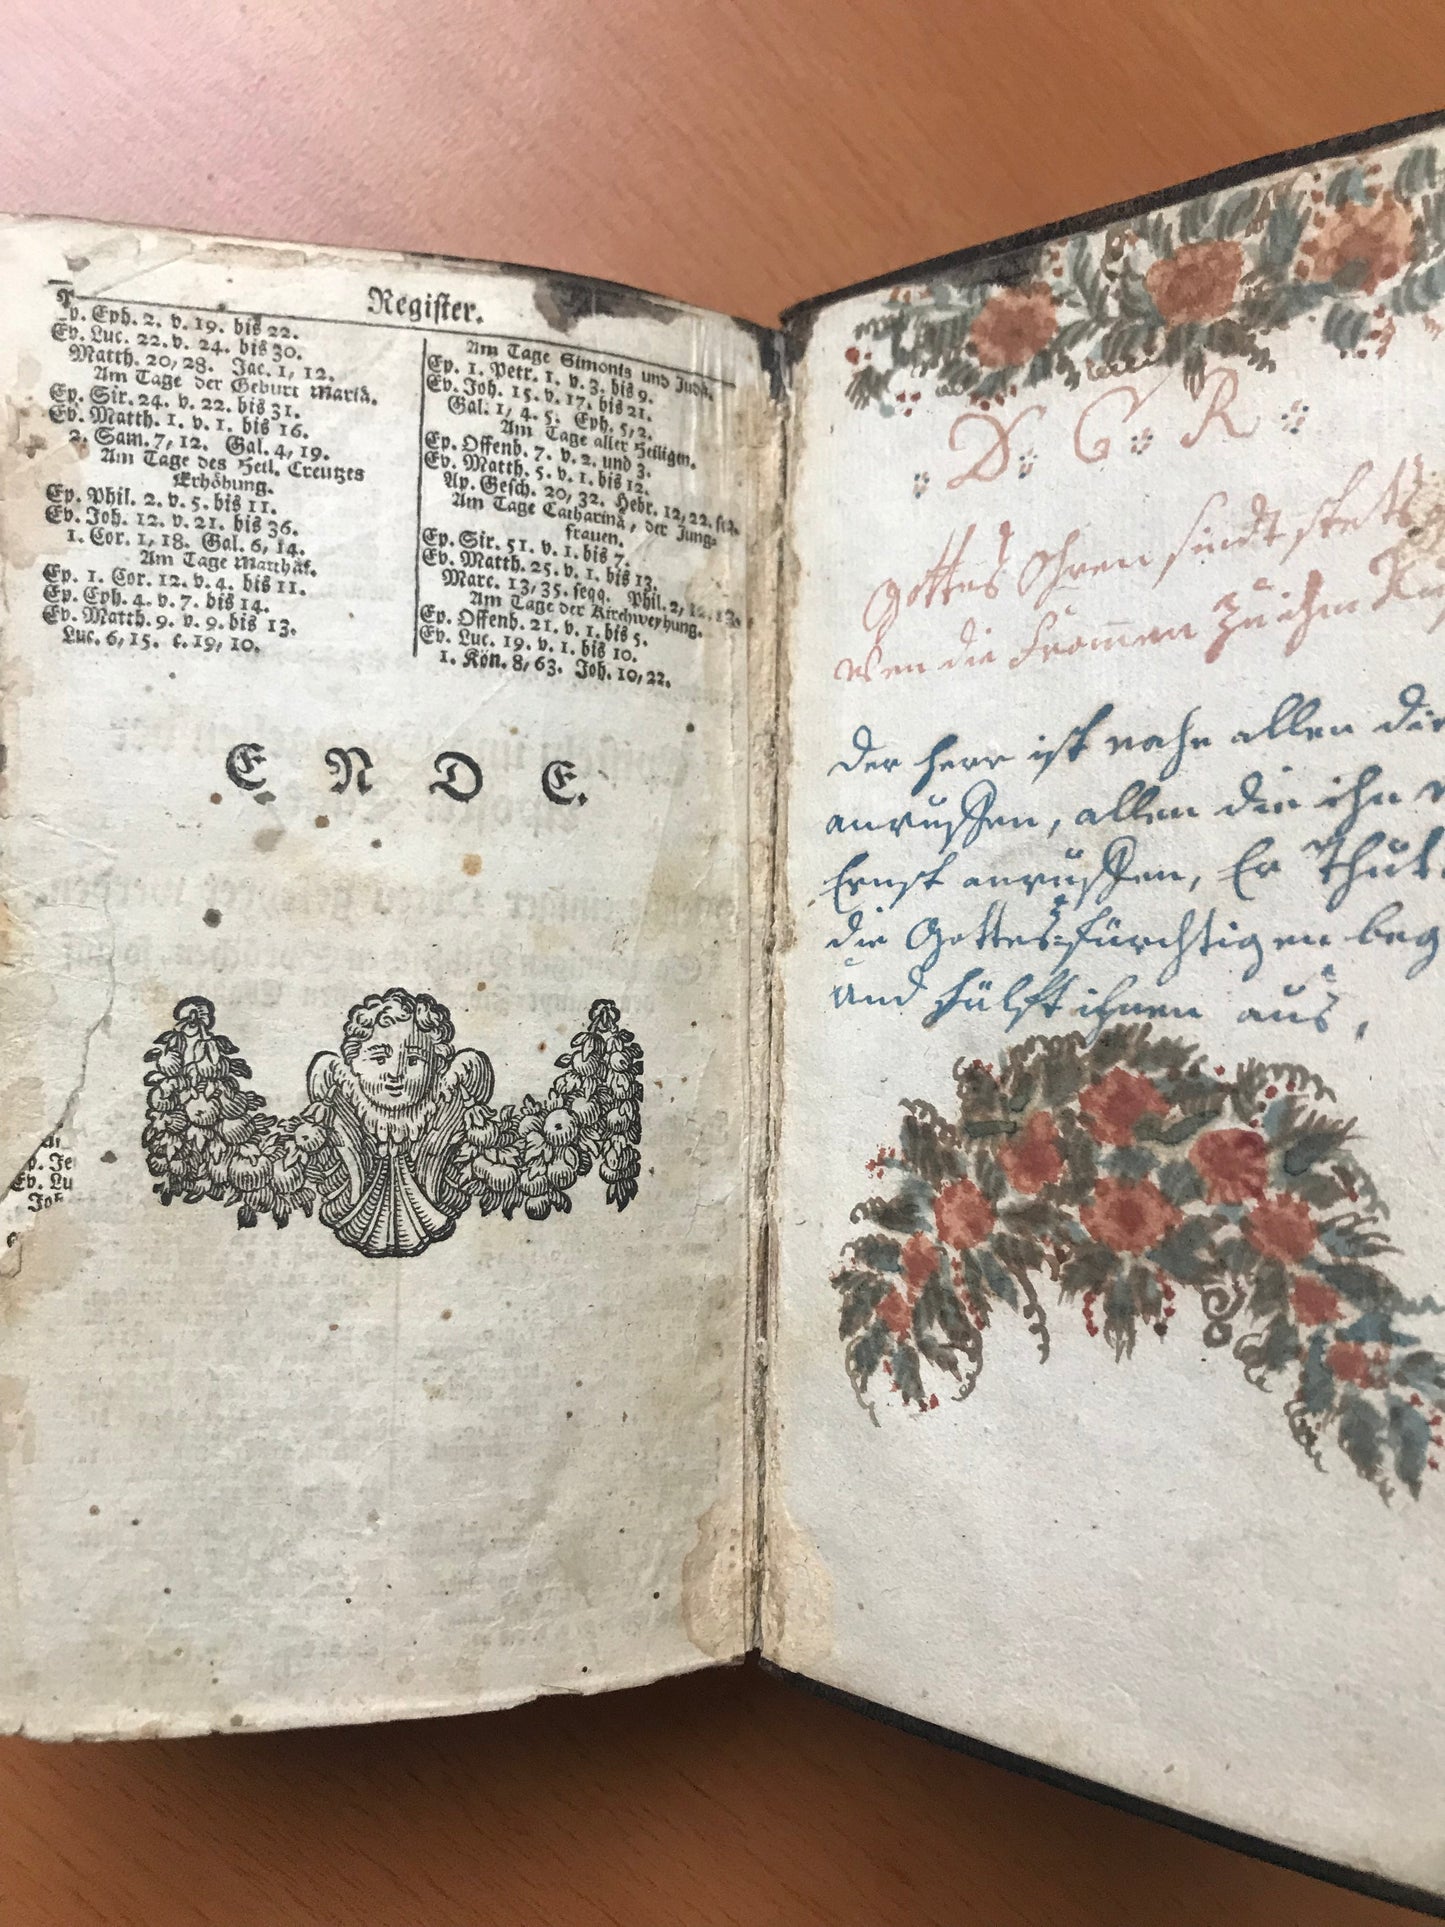 Register.
Ep. Eph. 2. v. 19. bis 22.
Ev. Luc. 22. v. 24. bis 30.
Matth. 20, 28. Jac. 1, 12.
Am Tage der Geburt Mariä.
Ep. Sir. 24. v. 22. bis 31.
Ev. Matth. 1. v. 1. bis 16.
2. Sam. 7, 12. Gal. 4, 19.
Am Tage des Heil. Creutzes
Erhöhung.
Ep. Phil. 2. v. 5. bis 11.
Ev. Joh. 12. v. 21. bis 36.
1. Cor. 1, 18. Gal. 6, 14.
Am Tage Matthäi.
Ep. 1. Cor. 12. v. 4. bis 11.
Ep. Eph. 4. v. 7. bis 14.
Ev. Matth. 9. v. 9. bis 13.
Luc. 6, 15. c. 19, 10.
Am Tage Simonis und Judä.
Ep. 1. Petr. 1. v. 3. bis 9.
Ev. Joh. 15. v. 17. bis 21.
Gal. 1, 4. 5. Eph. 5, 2.
Am Tage aller Heiligen.
Ep. Offenb. 7. v. 2. und 3.
Ev. Matth. 5. v. 1. bis 12.
Ap. Gesch. 20, 32. Hebr. 12, 22. seq.
Am Tage Catharinä, der Jung-
frauen.
Ep. Sir. 51. v. 1. bis 7.
Ev. Matth. 25. v. 1. bis 13.
Marc. 13, 35. seqq. Phil. 2, 12. 13.
Am Tage der Kirchweyhung.
Ep. Offenb. 21. v. 1. bis 5.
Ev. Luc. 19. v. 1. bis 10.
1. Kön. 8, 63. Joh. 10, 22.
E N D E.
p. Je
Ev. Lu
Joh
D. C. R.
Gottes Ohren sindt stets
wen die From̄en zu ihm
der Herr ist nahe allen die
anruffen, allen die ihn
Ernst anruffen, Er Thut
die Gottes=fürchtigen beg
und hülft ihnen aus,